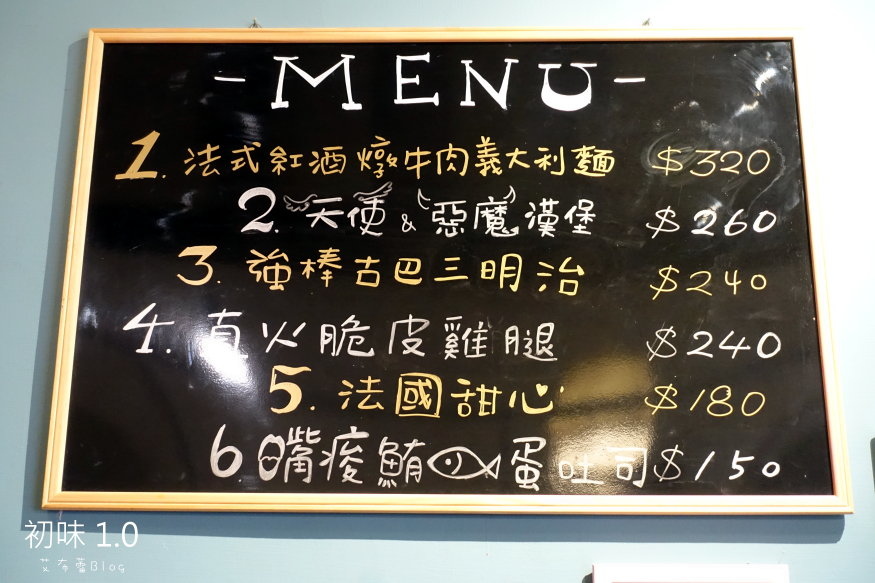 -MENU-
1. 法式紅酒燉牛肉義大利麵 $320
2. 天使&惡魔漢堡 $260
3. 強棒古巴三明治 $240
4. 直火脆皮雞腿 $240
5. 法國甜心 $180
6 嘴痠鮪蛋吐司 $150
初味 1.0
艾布蕾Blog